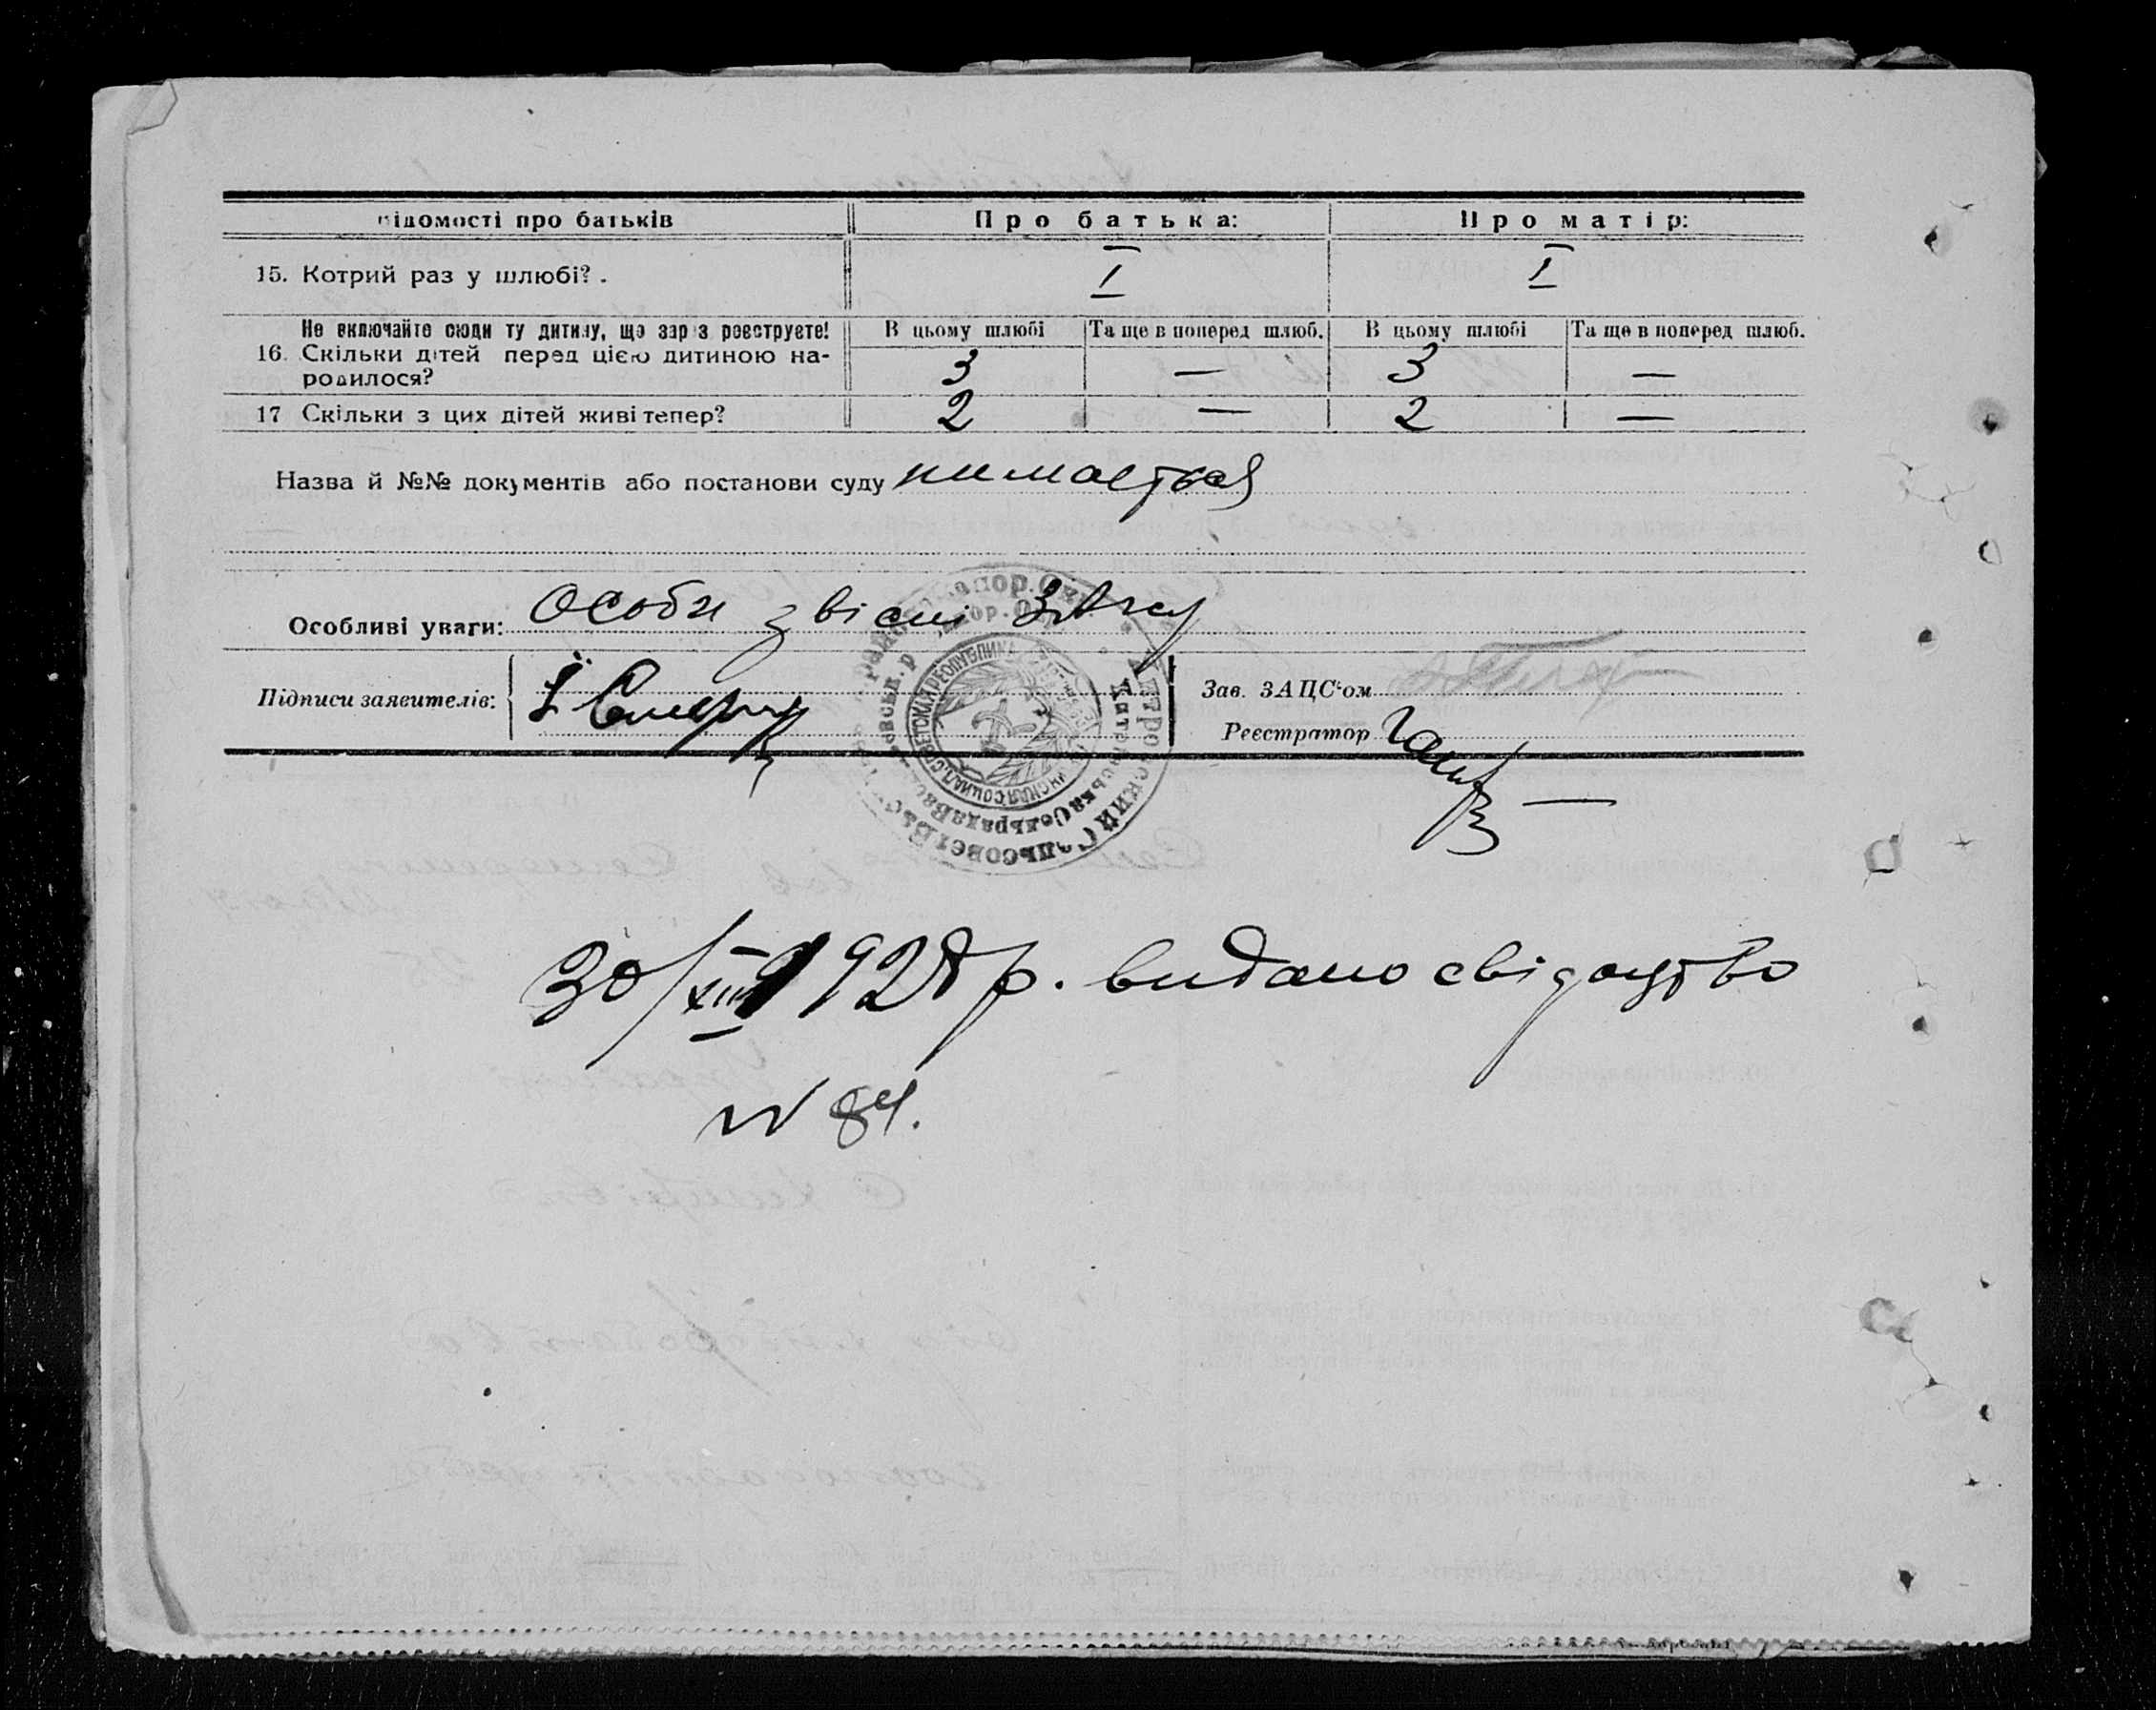 відомості про батьків Про батька: Про матір:
15. Котрий раз у шлюбі? . I I
Не включайте сюди ту дитину, що зараз реєструєте! В цьому шлюбі Та ще в поперед шлюб. В цьому шлюбі Та ще в поперед шлюб.
16. Скільки дітей перед цією дитиною на- 3 — 3 —
родилося?
17 Скільки з цих дітей живі тепер? 2 — 2 —
Назва й №№ документів або постанови суду
Особливі уваги: Особи звісні ЗАГсу
Підписи заявителів:
Зав. ЗАЦС'ом
Реєстратор
УКРАИНСКАЯ СОЦИАЛ. СОВЕТСКАЯ РЕСПУБЛИКА
Сельрада
Сельсовет
30/XII 1928 р. видано свідоцтво
N 84.